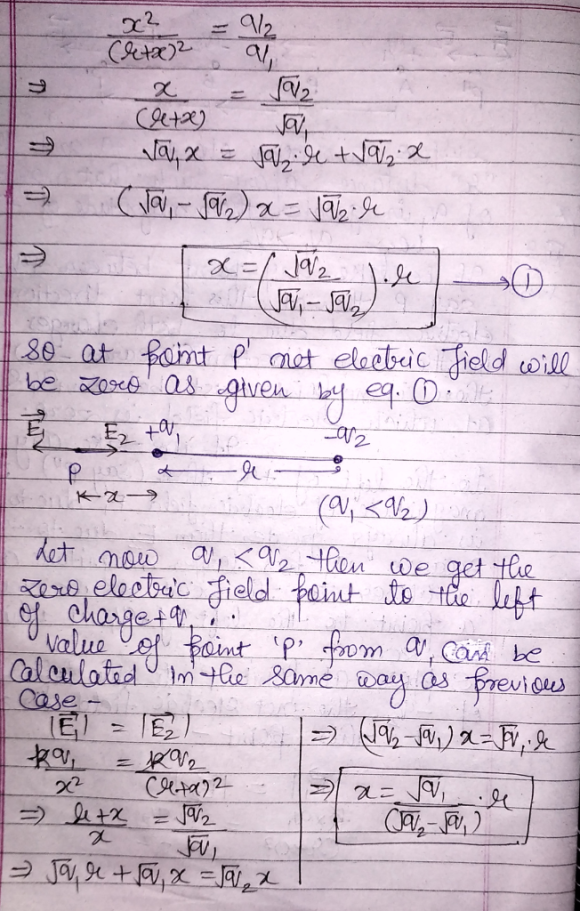 x²/(r+x)² = q₂/q₁
⇒ x/(r+x) = √q₂/√q₁
⇒ √q₁x = √q₂·r + √q₂·x
⇒ (√q₁ - √q₂) x = √q₂·r
⇒ x = (√q₂/(√q₁ - √q₂))·r → ①
So at point P' net electric field will
be zero as given by eq. ①.
E⃗₁ E₂ +q₁ -q₂
P r
x
(q₁ < q₂)
Let now q₁ < q₂ then we get the
zero electric field point to the left
of charge +q₁.
Value of point 'P' from q₁ can be
calculated in the same way as previous
case -
|E⃗₁| = |E⃗₂|
kq₁/x² = kq₂/(r+x)²
⇒ (r+x)/x = √q₂/√q₁
⇒ √q₁r + √q₁x = √q₂x
⇒ (√q₂ - √q₁) x = √q₁·r
⇒ x = √q₁/(√q₂ - √q₁)·r